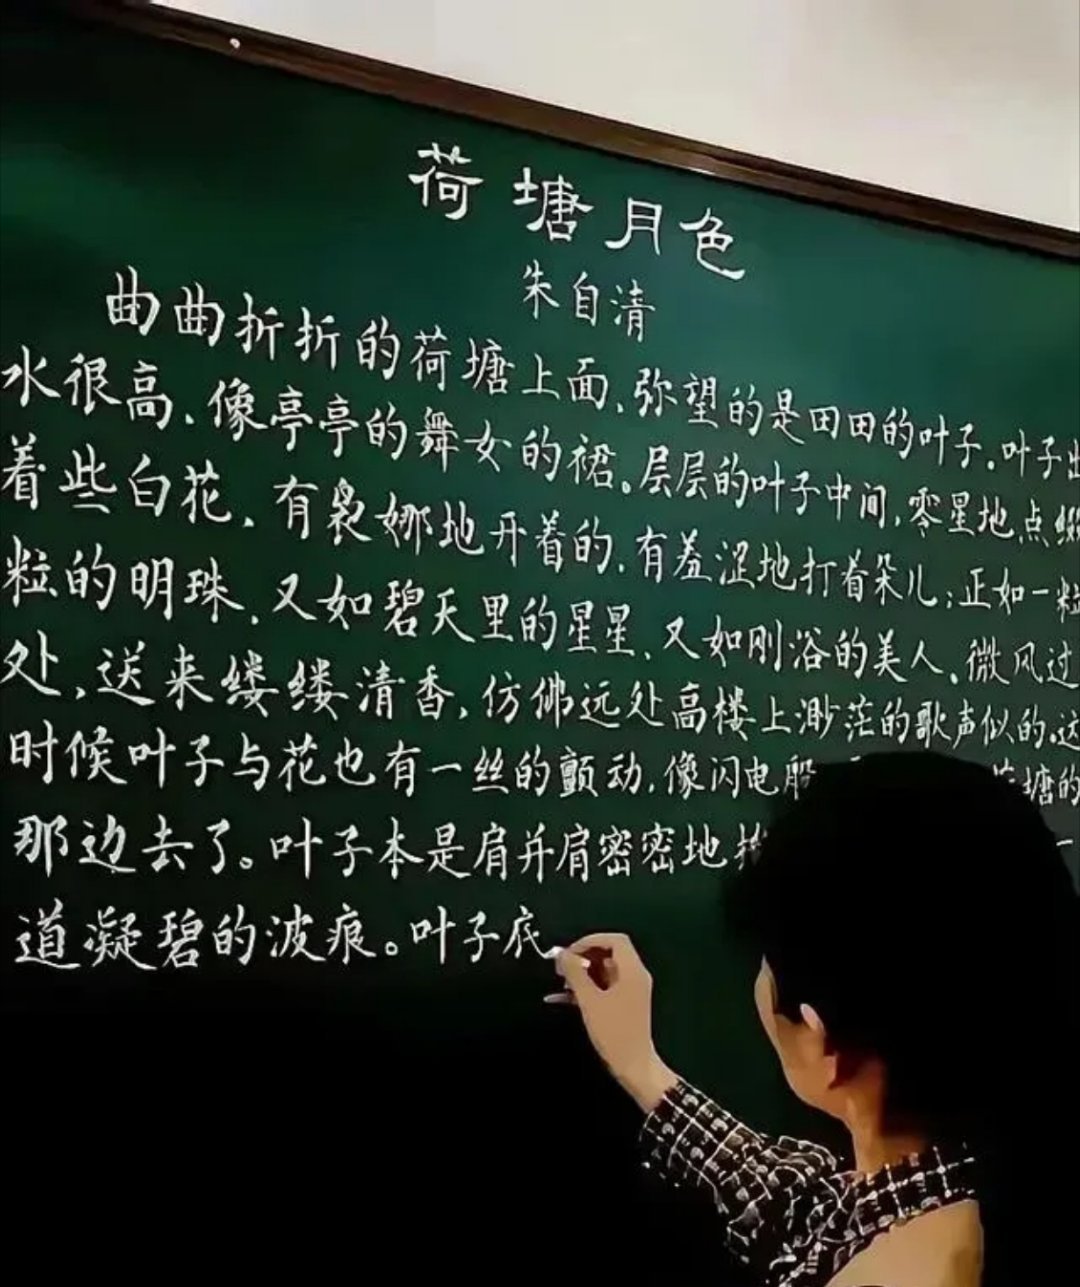 荷塘月色
朱自清
曲曲折折的荷塘上面,弥望的是田田的叶子。叶子出
水很高,像亭亭的舞女的裙。层层的叶子中间,零星地点缀
着些白花,有袅娜地开着的,有羞涩地打着朵儿;正如一粒
粒的明珠,又如碧天里的星星,又如刚浴的美人。微风过
处,送来缕缕清香,仿佛远处高楼上渺茫的歌声似的。这
时候叶子与花也有一丝的颤动,像闪电般 塘的
那边去了。叶子本是肩并肩密密地 一
道凝碧的波痕。叶子底